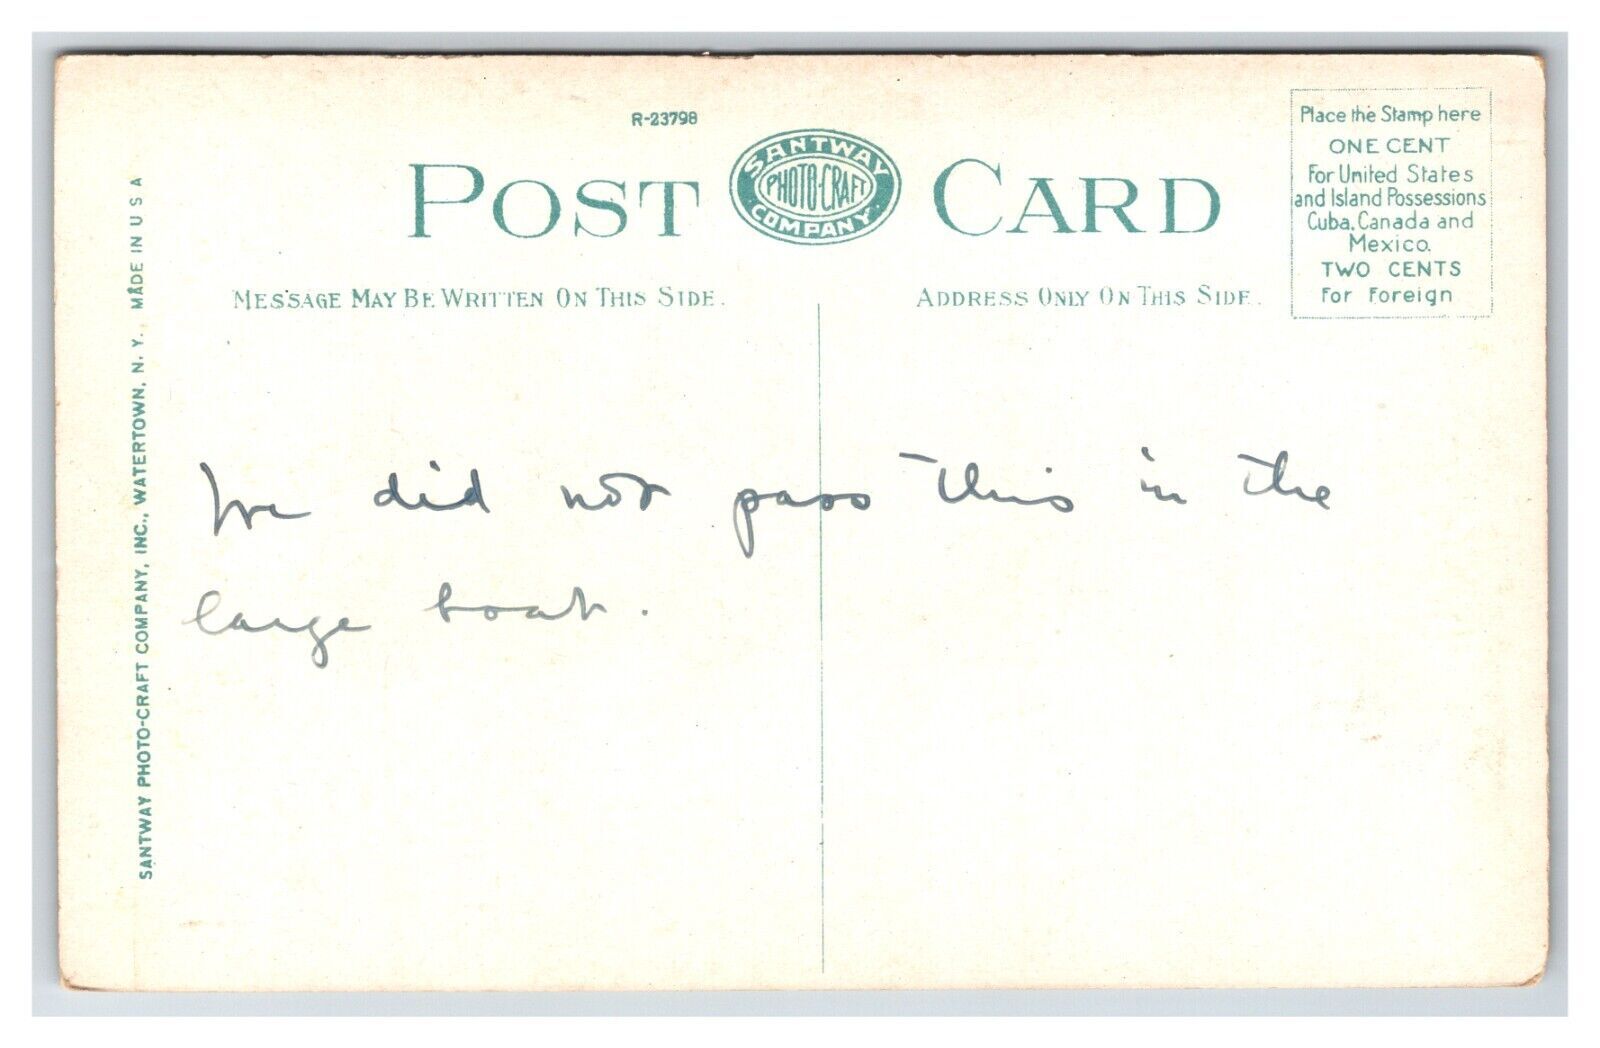 R-23798
POST CARD
SANTWAY
PHOTO-CRAFT
COMPANY.
Place the Stamp here
ONE CENT
For United States
and Island Possessions
Cuba, Canada and
Mexico.
TWO CENTS
For Foreign
MESSAGE MAY BE WRITTEN ON THIS SIDE.
ADDRESS ONLY ON THIS SIDE.
We did not pass this in the
large boat.
SANTWAY PHOTO-CRAFT COMPANY, INC., WATERTOWN, N. Y. MADE IN U S A